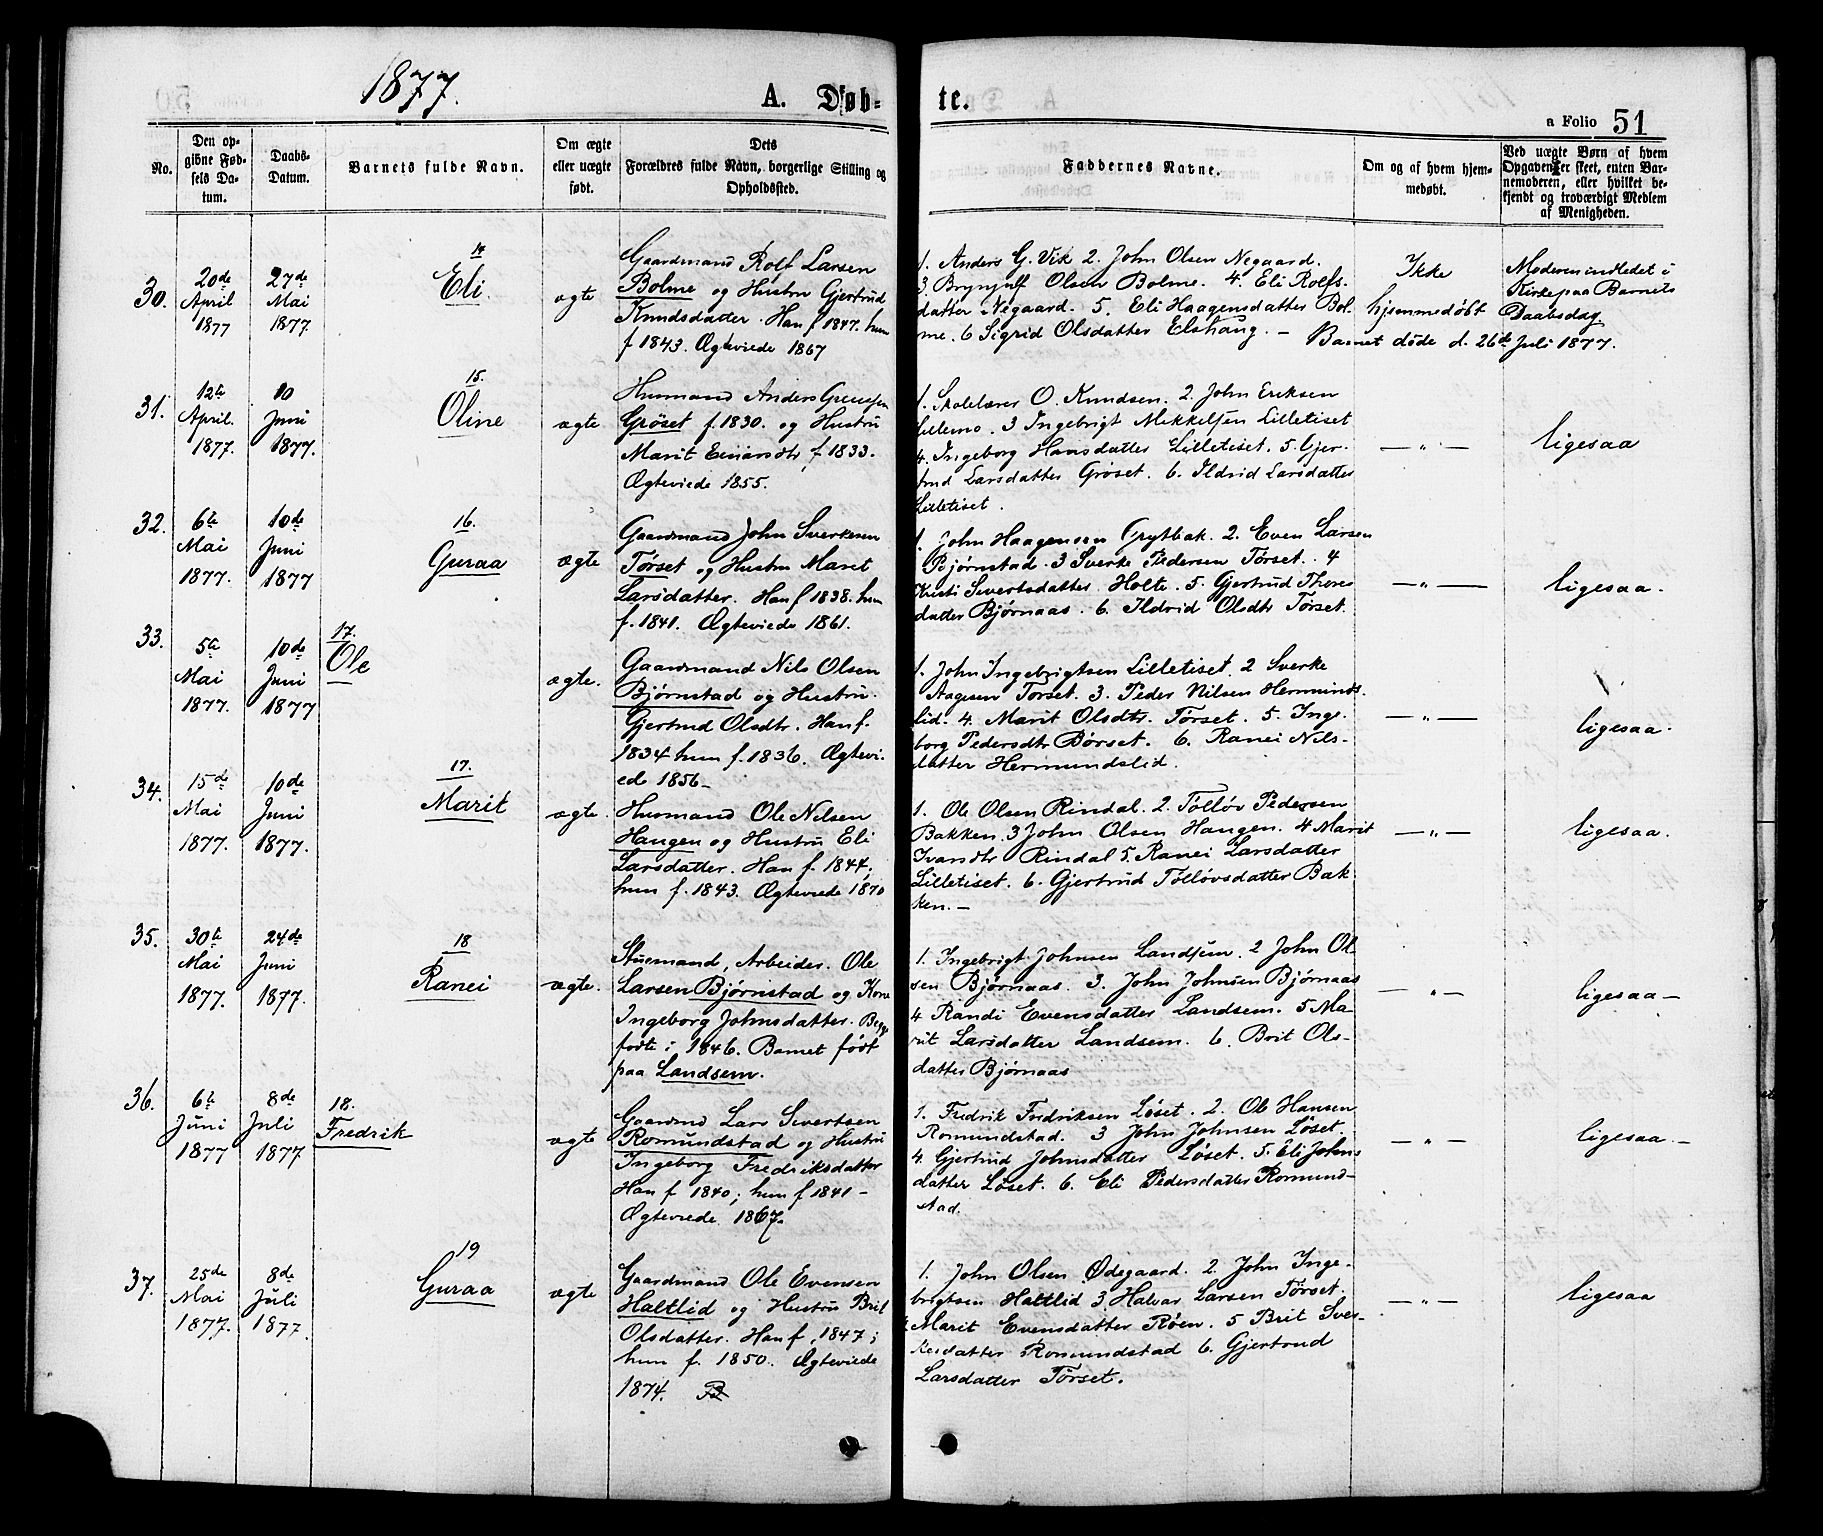 1877.
A. Døb-
te.
a Folio 51
No.
Den op-
givne Fød-
sels Da-
tum.
Daabs-
Datum.
Barnets fulde Navn.
Om ægte
eller uægte
født.
Dets
Forældres fulde Navn, borgerlige Stilling og
Opholdssted.
Faddernes Navne.
Om og af hvem hjem-
medøbt.
Ved uægte Børn af hvem
Opgaven er skeet, enten Bar-
nemoderen, eller hvilket be-
kjendt og troværdigt Medlem
af Menigheden.
30.
20de
April
1877
27de
Mai
1877
14
Eli
ægte
Gaardmand Rolf Larsen
Bolme og Hustru Gjertrud
Knudsdatter. Han f 1847. hun
f 1843. Ægteviede 1867
1. Anders G. Vik 2. John Olsen Negaard.
3 Brynjulf Olsen Bolme. 4. Eli Rolfs-
datter Negaard. 5. Eli Haagensdatter Bol-
me. 6 Sigrid Olsdatter Elshaug. –
Ikke
hjemmedøbt
Moderen indledet i
Kirke paa Barnets
Daabsdag.
Barnet døde d. 26de Juli 1877.
31.
12te
April.
1877.
10
Juni
1877.
15.
Oline
ægte
Husmand Anders
Grøset f. 1830. og Hustru
Marit Einarsdtr f. 1833.
Ægteviede 1855.
1. Skolelærer O. Knudsen. 2. John Eriksen
Lillemo. 3 Ingebrigt Mikkelsen Lilletiset
4. Ingeborg Hansdatter Lilletiset. 5. Gjer-
trud Larsdatter Grøset. 6. Ildrid Larsdatter
Lilletiset.
— " —
ligesaa
32.
6te
Mai
1877.
10de
Juni
1877
16.
Guraa
ægte
Gaardmand John Sverkesen
Tørset og Hustru Marit
Larsdatter. Han f 1838. hun
f. 1841. Ægteviede 1861.
1. John Haagensen Grytbak. 2. Even Larsen
Bjørnstad. 3 Sverke Pedersen Tørset. 4
Kristi Sivertsdatter Holte. 5. Gjertrud Thores-
datter Bjørnaas. 6. Ildrid Olsdtr Tørset.
— " —
ligesaa.
33.
5te
Mai
1877.
10de
Juni
1877
17.
Ole
ægte.
Gaardmand Nils Olsen
Bjørnstad og Hustru.
Gjertrud Olsdtr. Han f.
1834 hun f. 1836. Ægtevi-
ede 1856–
1. John Ingebrigtsen Lilletiset. 2 Sverke
Aagesen Tørset. 3. Peder Nilsen Hermunds-
lid. 4. Marit Olsdtr. Tørset. 5. Inge-
borg Pedersdtr Børset. 6. Ranei Nils-
datter Hermundslid.
— " —
ligesaa.
34.
15de
Mai
1877.
10de
Juni
1877.
17.
Marit
ægte.
Husmand Ole Nilsen
Haugen og Hustru Eli
Larsdatter. Han f. 1844;
hun f. 1843. Ægteviede 1870
1. Ole Olsen Rindal. 2. Tølløv Pedersen
Bakken. 3 John Olsen Haugen. 4 Marit
Ivarsdtr Rindal 5. Ranei Larsdatter
Lilletiset. 6. Gjertrud Tølløvsdatter Bak-
ken.–
— " —
ligesaa.
35.
30te
Mai
1877.
24de
Juni
1877.
18
Ranei
ægte.
Stuemand, Arbeider. Ole
Larsen Bjørnstad og Kone
Ingeborg Johnsdatter. Begge
fødte i 1846. Barnet født
paa Landsem.
1. Ingebrigt Johnsen Landsem. 2 John Ol-
sen Bjørnaas. 3. John Johnsen Bjørnaas
4 Randi Evensdatter Landsem. 5 Ma-
rit Larsdatter Landsem. 6. Brit Ols-
datter Bjørnaas
— " —
ligesaa –
36.
6te
Juni
1877
8de
Juli
1877
18.
Fredrik
ægte
Gaardmd Lars Sivertsen
Romundstad og Hustru
Ingeborg Fredriksdatter
Han f 1840; hun f 1841 –
Ægteviede 1867.
1. Fredrik Fredriksen Løset. 2. Ole Hansen
Romundstad. 3 John Johnsen Løset.
4. Gjertrud Johnsdatter Løset. 5. Eli Johns-
datter Løset. 6. Eli Pedersdatter Romund-
stad.
— " —
ligesaa. –
37.
25de
Mai
1877.
8de
Juli
1877
19
Guraa
ægte
Gaardmand Ole Evensen
Haltlid og Hustru Brit
Olsdatter. Han f. 1847;
hun f. 1850. Ægteviede
1874.
1. John Olsen Ødegaard. 2. John Inge-
brigtsen Haltlid 3 Halvar Larsen Tørset.
Marit Evensdatter Røen. 5 Brit Sver-
kesdatter Romundstad 6. Gjertrud
Larsdatter Tørset.
— " —
ligesaa